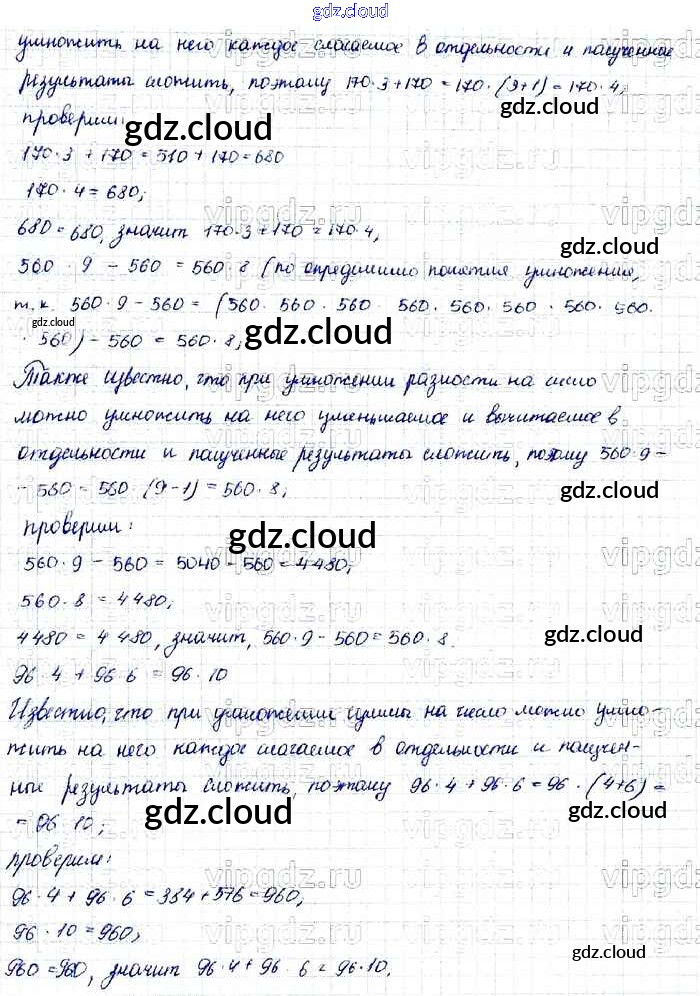 gdz.cloud
умножить на него каждое слагаемое в отдельности и полученные
результаты сложить, поэтому 170·3+170=170·(3+1)=170·4,
проверим:
gdz.cloud
gdz.cloud
170·3 + 170 = 510 + 170 = 680
170·4 = 680;
680 = 680, значит 170·3+170=170·4,
gdz.cloud
560 · 9 - 560 = 560·8 (по определению понятия умножения,
т.к. 560·9-560 = (560· 560 · 560 · 560. 560. 560 · 560 · 560.
gdz.cloud
· 560) - 560 = 560·8;
gdz.cloud
gdz.cloud
Также известно, что при умножении разности на число
можно умножить на него уменьшаемое и вычитаемое в
отдельности и полученные результаты сложить, поэтому 560·9-
- 560 = 560 (9-1) = 560·8;
gdz.cloud
проверим:
gdz.cloud
560·9 - 560 = 5040 - 560 = 4480;
560·8 = 4480;
4480 = 4480, значит, 560·9-560=560·8.
gdz.cloud
96·4 + 96·6 = 96·10
Известно, что при умножении суммы на число можно умно-
жить на него каждое слагаемое в отдельности и получен-
ные результаты сложить, поэтому 96·4+96·6=96·(4+6)=
= 96·10;
gdz.cloud
gdz.cloud
проверим:
96·4 + 96·6 = 384+576=960,
96·10 = 960,
gdz.cloud
960=960, значит 96·4+96·6=96·10.
vipgdz.ru